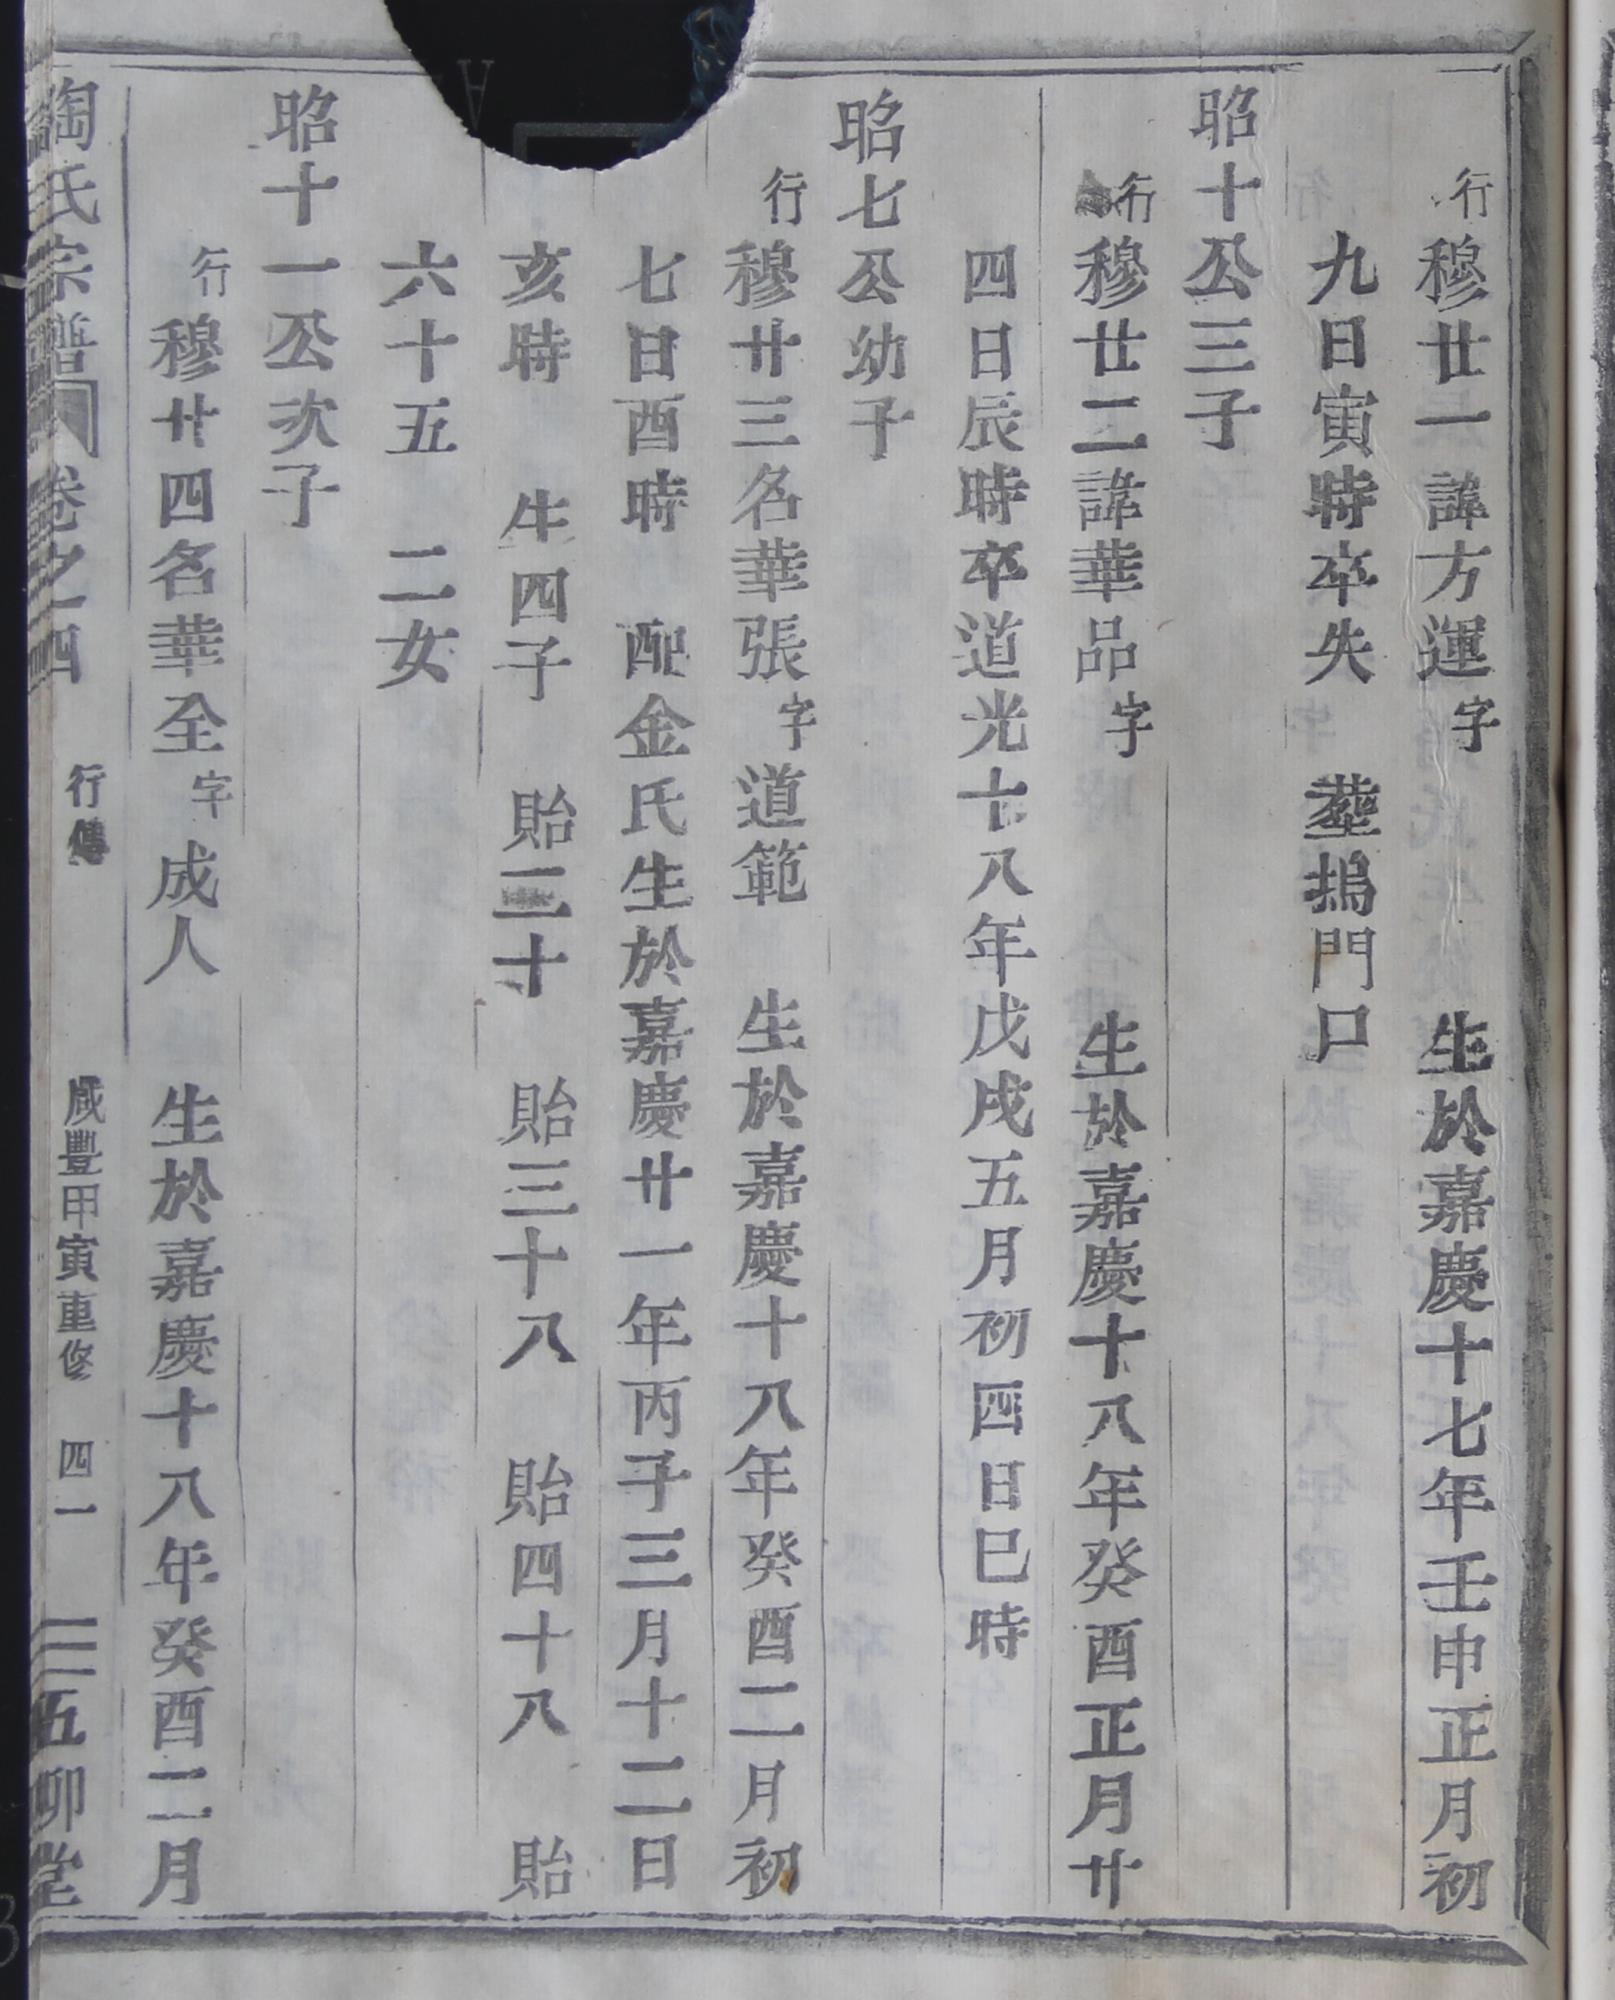 行穆廿一諱方運字 生於嘉慶十七年壬申正月初
九日寅時卒失 塟塢門口
昭十公三子
行穆廿二諱華品字 生於嘉慶十八年癸酉正月廿
四日辰時卒道光十八年戊戌五月初四日巳時
昭七公幼子
行穆廿三名華張字道範 生於嘉慶十八年癸酉二月初
七日酉時 配金氏生於嘉慶廿一年丙子三月十二日
亥時 生四子 貽二十 貽三十八 貽四十八 貽
六十五 二女
昭十一公次子
行穆廿四名華全字成人 生於嘉慶十八年癸酉二月
陶氏宗譜 卷之四 行傳 咸豐甲寅重修 四一 五柳堂